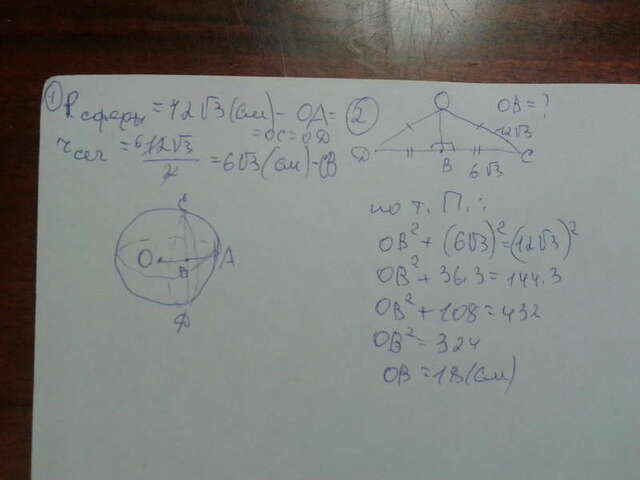 ① R сферы = 12√3 (см) - OA =
= OC = OD
r сеч = 12√3/2 = 6√3 (см) - CB
C
O
B
A
D
②
O
OB = ?
12√3
D
B
C
6√3
по т. П.:
OB² + (6√3)² = (12√3)²
OB² + 36·3 = 144·3
OB² + 108 = 432
OB² = 324
OB = 18 (см)